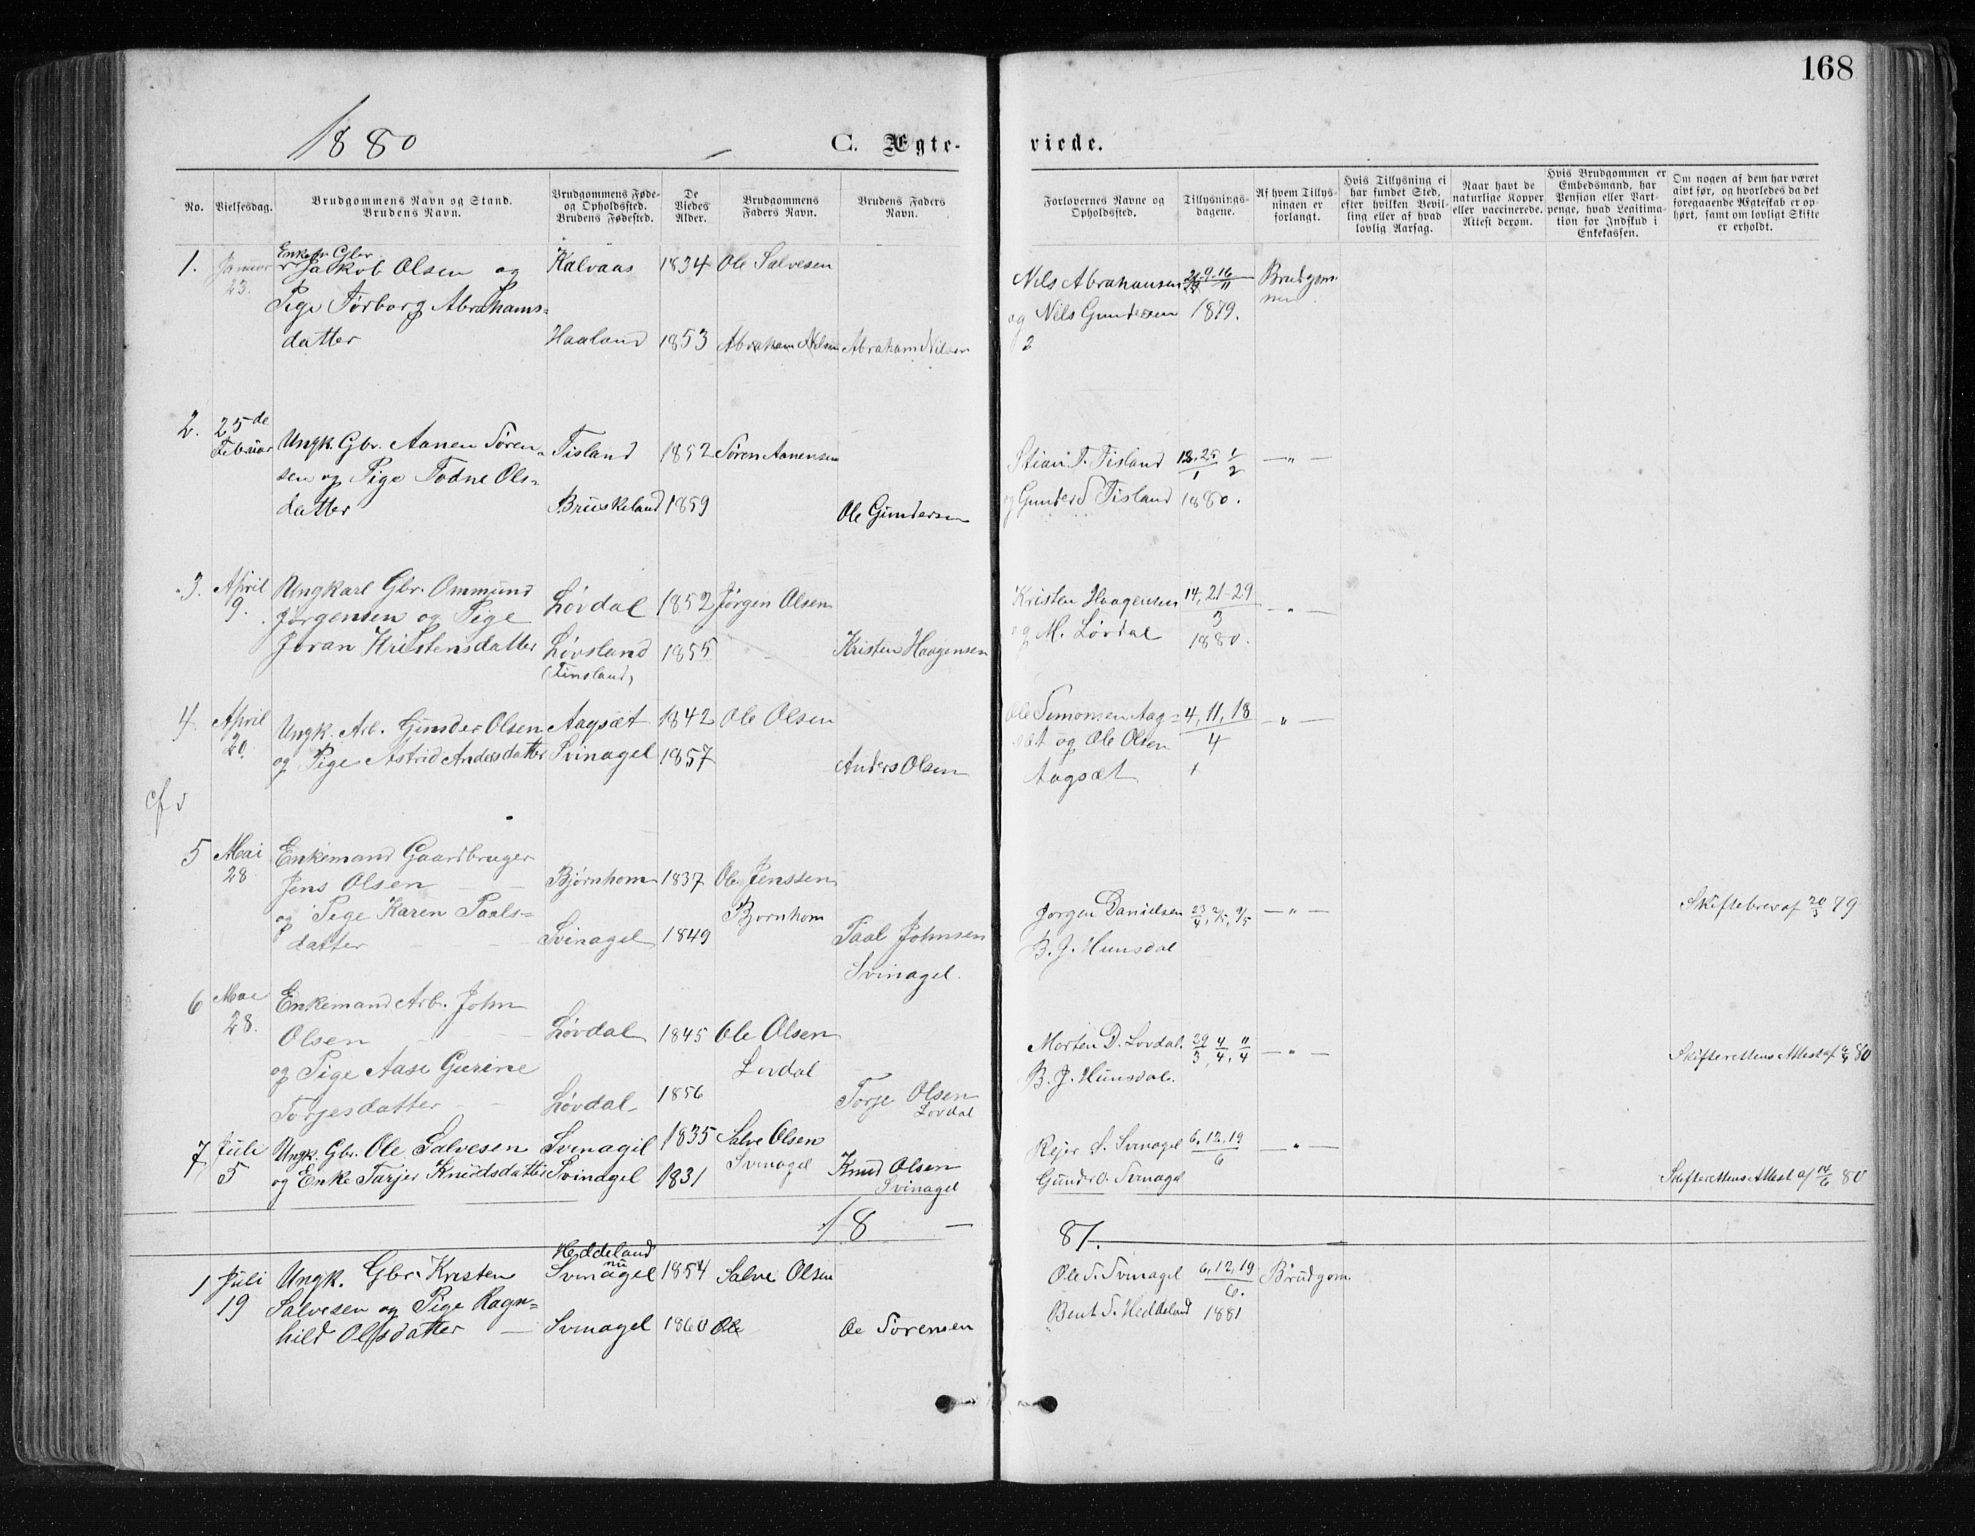 168
1880
C. Ægte-
viede.
No.
Vielsesdag.
Brudgommens Navn og Stand.
Brudens Navn.
Brudgommens Føde-
og Opholdssted.
Brudens Fødested.
De
Viedes
Alder.
Brudgommens
Faders Navn.
Brudens Faders
Navn.
Forlovernes Navne og
Opholdssted.
Tillysnings-
dagene.
Af hvem Tillys-
ningen er
forlangt.
Hvis Tillysning ei
har fundet Sted,
efter hvilken Bevil-
ling eller af hvad
lovlig Aarsag.
Naar havt de
naturlige Kopper
eller vaccinerede.
Attest derom.
Hvis Brudgommen er
Embedsmand, har
Pension eller Vart-
penge, hvad Legitima-
tion for Indskud i
Enkekassen.
Om nogen af dem har været
givt før, og hvorledes da det
foregaaende Ægteskab er op-
hørt, samt om lovligt Skifte
er erholdt.
1. Januar
23.
Enkem Gbr
Jakob Olsen og
Pige Torborg Abrahams-
datter
Kalvaas 1834 Ole Salvesen
Haaland 1853 Abraham Nilsen Abraham Nilsen
Nils Abrahansen 9. 16/11
og Nils Gundersen 1879.
2
Brudgom
men
2. 25de
Februar
Ungk. Gbr. Aanen Søren-
sen og Pige Todne Ols-
datter
Tisland 1852 Søren Aanensen
Bruskeland 1859
Ole Gundersen
Stian T. Tisland 18, 25/1 1/2 — " —
og Gunder S. Tisland 1880.
3. April
9.
Ungkarl Gbr. Ommund
Jørgensen og Pige
Joran Kristensdatter
Løvdal 1852 Jørgen Olsen
Løvsland 1855 Kristen Haagensen
(Finsland)
Kristen Haagensen 14, 21-29/3 — " —
og M. Løvdal 1880.
4. April
20.
Ungk. Arb. Gunder Olsen
og Pige Astrid Andersdatter
Aagsæt 1842 Ole Olsen
Svinagel 1857
Anders Olsen
Ole Simonsen Aag-
sæt og Ole Olsen
Aagsæt
4, 11, 18/4 — " —
5 Mai
28
Enkemand Gaardbruger
Jens Olsen
og Pige Karen Paals-
datter
Bjørnhom 1837 Ole Jenssen
Bjornhom
Svinagel 1849
Paal Johnsen
Svinagel.
Jørgen Danielsen 23/4, 2/5, 9/5 — " —
B. J. Hunsdal
Skiftebrev af 20/3 79
6 Mai
28.
Enkemand Arb. John
Olsen
og Pige Aase Gurine
Torjesdatter
Løvdal 1845 Ole Olsen
Lovdal
Løvdal 1856
Torje Olsen
Lovdal
Morten D. Lovdal. 29/3, 4/4, 11/4 — " —
B. J. Hunsdal.
Skifterettens Attest af 80
7 Juli
5
Ungk. Gbr. Ole Salvesen
og Enke Tarjer Knudsdatter
Svinagel 1835 Salve Olsen
Svinagel
Svinagel 1831
Knud Olsen
Svinagel
Rejer S. Svinagel 6, 12, 19/6 — " —
Gunder O. Svinagel
Skifterettens Attest af 14/6 80
18 — 81.
1 Juli
19
Ungk. Gbr. Kristen
Salvesen og Pige Ragn-
hild Olsdatter
Heddeland
nu
Svinagel 1854 Salve Olsen
Svinagel 1860 Ole
Oe Sorensen
Ole S. Svinagel 6, 12, 19/6. Brudgom.
Bent S. Heddeland 1881